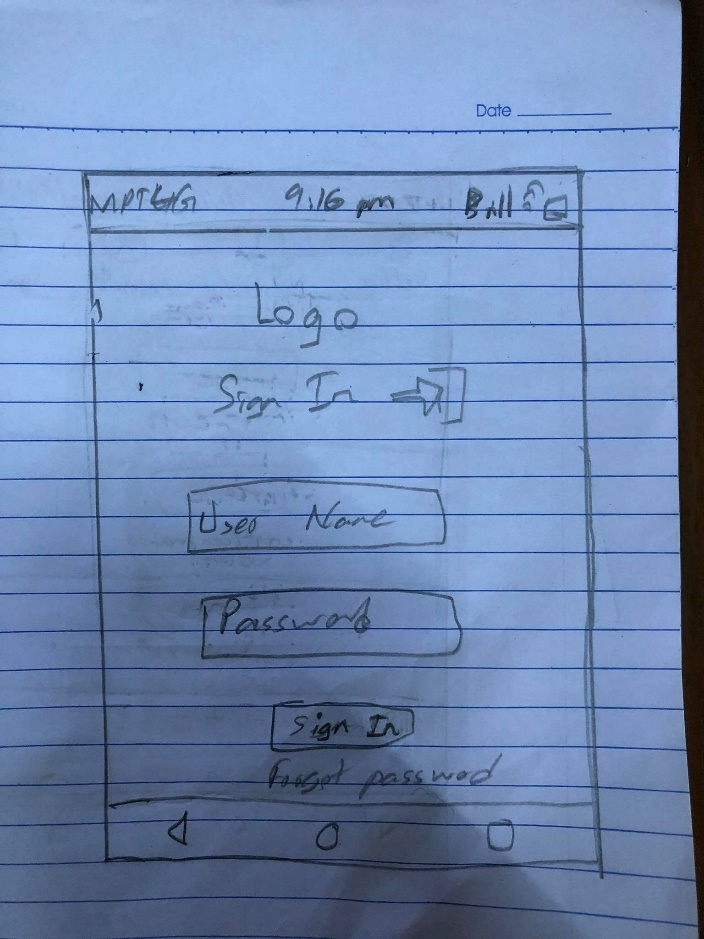 Date
9:16 pm
Logo
Sign In
User Name
Password
Sign In
Forgot password